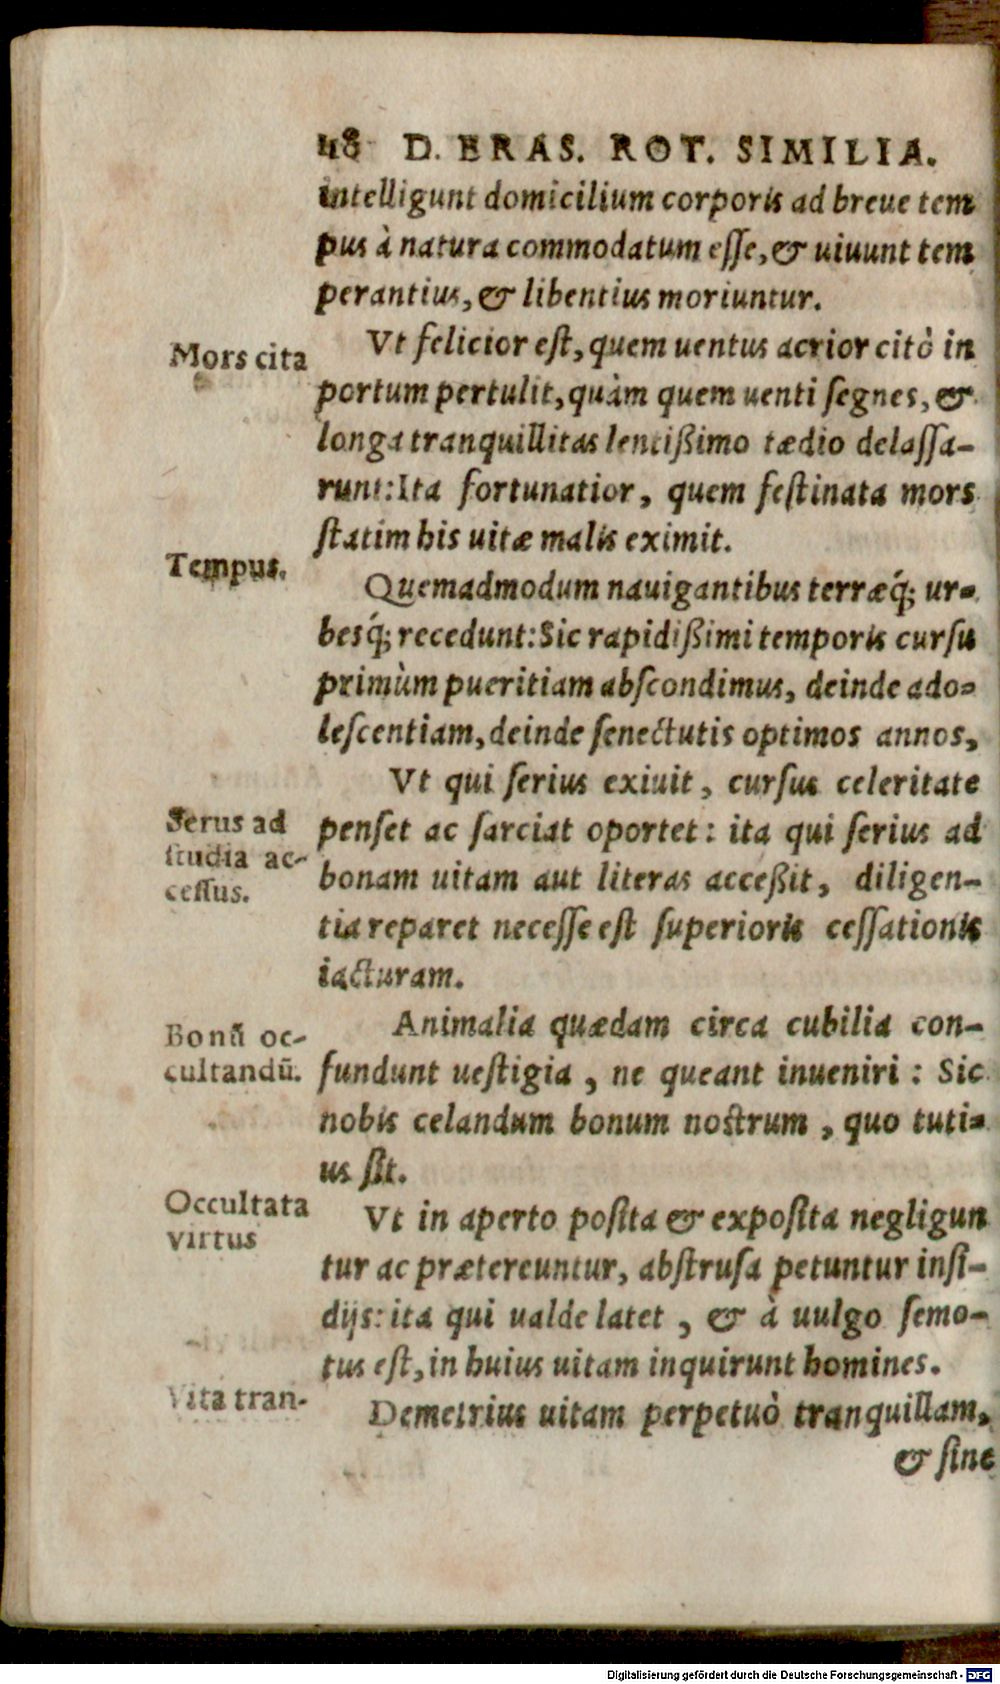 48 D. ERAS. ROT. SIMILIA.
intelligunt domicilium corporis ad breue tem
pus à natura commodatum eſſe, & uiuunt tem
perantius, & libentius moriuntur.
Mors cita
Vt felicior eſt, quem uentus acrior citò in
portum pertulit, quàm quem uenti ſegnes, &
longa tranquillitas lentißimo tædio delaſſa-
runt: Ita fortunatior, quem feſtinata mors
ſtatim his uitæ malis eximit.
Tempus.
Quemadmodum nauigantibus terræq́; ur-
besq́; recedunt: Sic rapidißimi temporis curſu
primùm pueritiam abſcondimus, deinde ado-
leſcentiam, deinde ſenectutis optimos annos,
Vt qui ſerius exiuit, curſus celeritate
Serus ad
ſtudia ac-
ceſſus.
penſet ac ſarciat oportet: ita qui ſerius ad
bonam uitam aut literas acceßit, diligen-
tia reparet neceſſe eſt ſuperioris ceſſationis
iacturam.
Bonũ oc-
cultandũ.
Animalia quædam circa cubilia con-
fundunt ueſtigia, ne queant inueniri: Sic
nobis celandum bonum noſtrum, quo tuti-
us ſit.
Occultata
virtus
Vt in aperto poſita & expoſita negligun
tur ac prætereuntur, abſtruſa petuntur inſi-
dijs: ita qui ualde latet, & à uulgo ſemo-
tus eſt, in huius uitam inquirunt homines.
Vita tran-
Demetrius uitam perpetuò tranquillam,
& ſine
Digitalisierung gefördert durch die Deutsche Forschungsgemeinschaft - DFG